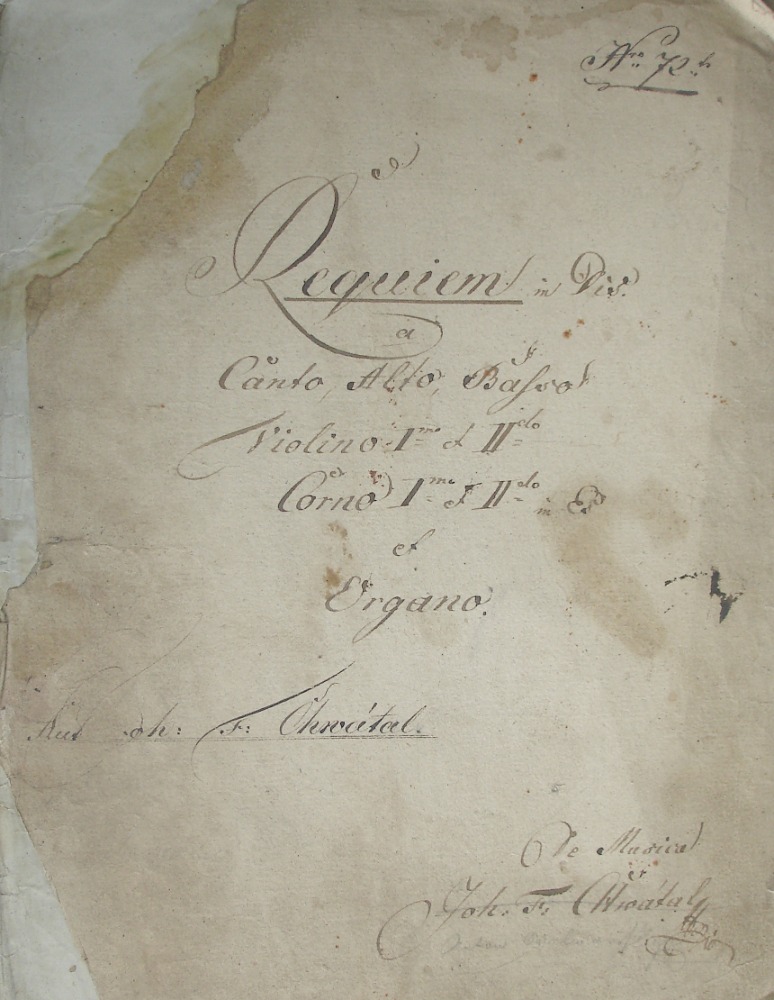 Nro 72
Requiem in Dis.
a
Canto, Alto, Basso
Violino Imo et IIdo
Corno Imo et IIdo in Es
et
Organo.
Aut Joh: F: Chwátal.
De Musica
Joh. F. Chwátal